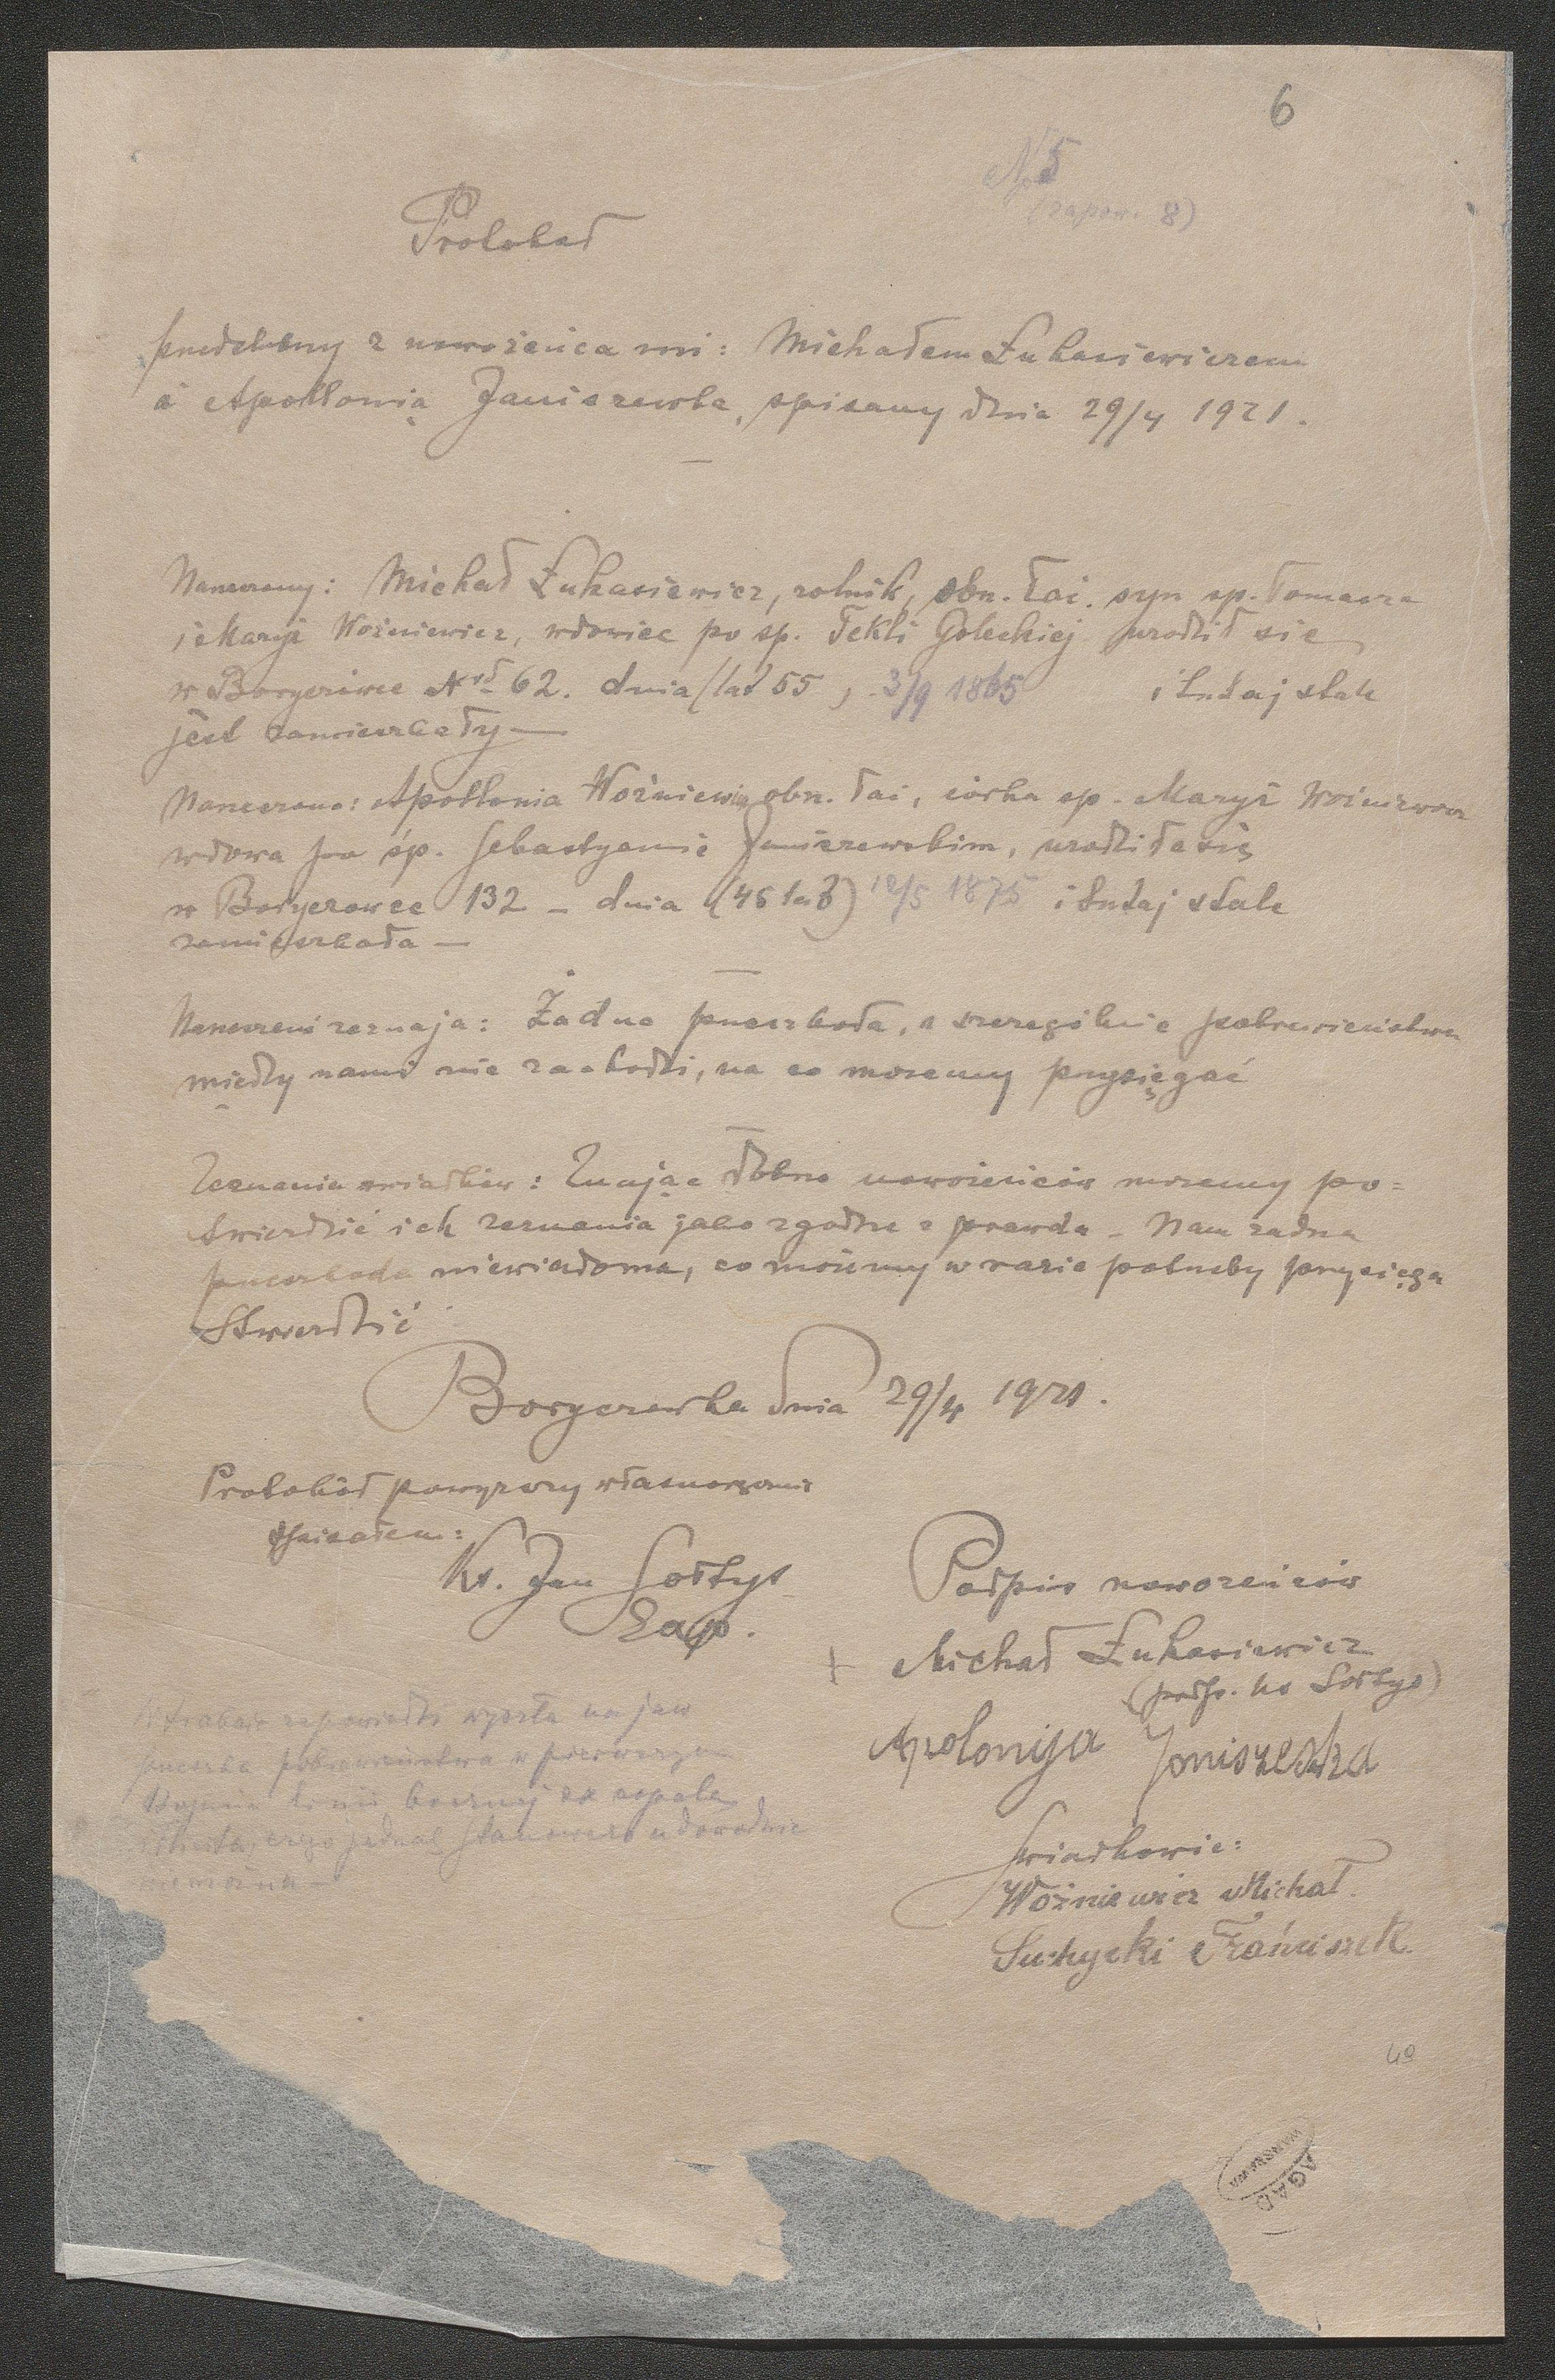 6
No 5
(zapow. 8)
Protokół
przedślubny z nowożeńcami: Michałem Łukasiewiczem
i Apollonią Janiszewską, spisany dnia 29/4 1921.
Narzeczony: Michał Łukasiewicz, rolnik, obrz. łać. syn śp. Tomasza
i Maryi Woźniewicz, wdowiec po śp. Tekli Goleckiej urodził się
w Boryczówce Nrd 62. dnia (lat 55) 3/9 1865 i tutaj stale
jest zamieszkały —
Narzeczona: Apollonia Woźniewicz obrz. łać, córka śp. Maryi
wdowa po śp. Sebastyanie Janiszewskim, urodziła się
w Boryczówce 132 – dnia (46 lat) 12/5 1875 i tutaj stale
zamieszkała —
Narzeczeni zeznają: Żadna przeszkoda, a szczególnie pokrewieństwa
między nami nie zachodzi, na co możemy przysięgać
Zeznania świadków: Znając dobrze nowożeńców możemy po=
twierdzić ich zeznania jako zgodne z prawdą – Nam żadna
przeszkoda niewiadoma, co możemy w razie potrzeby przysięgą
Stwierdzić
Boryczówka dnia 29/4 1921.
Protokół powyższy własnoręcznie
spisałem:
Ks. Jan Sołtys
Exp.
Podpis nowożeńców
+ Michał Łukasiewicz
(podp. ks Sołtys)
Apolonija Joniszeska
W trakcie zapowiedzi wyszła na jaw
przeszk. pokrewieństwa w pierwszym
stopniu linii bocznej ex copula
illicita, czego jednak stanowczo udowodnić
nie można –
Świadkowie:
Woźniewicz Michał.
Suchycki Frańciszek.
49
AGAD
WARSZAWA